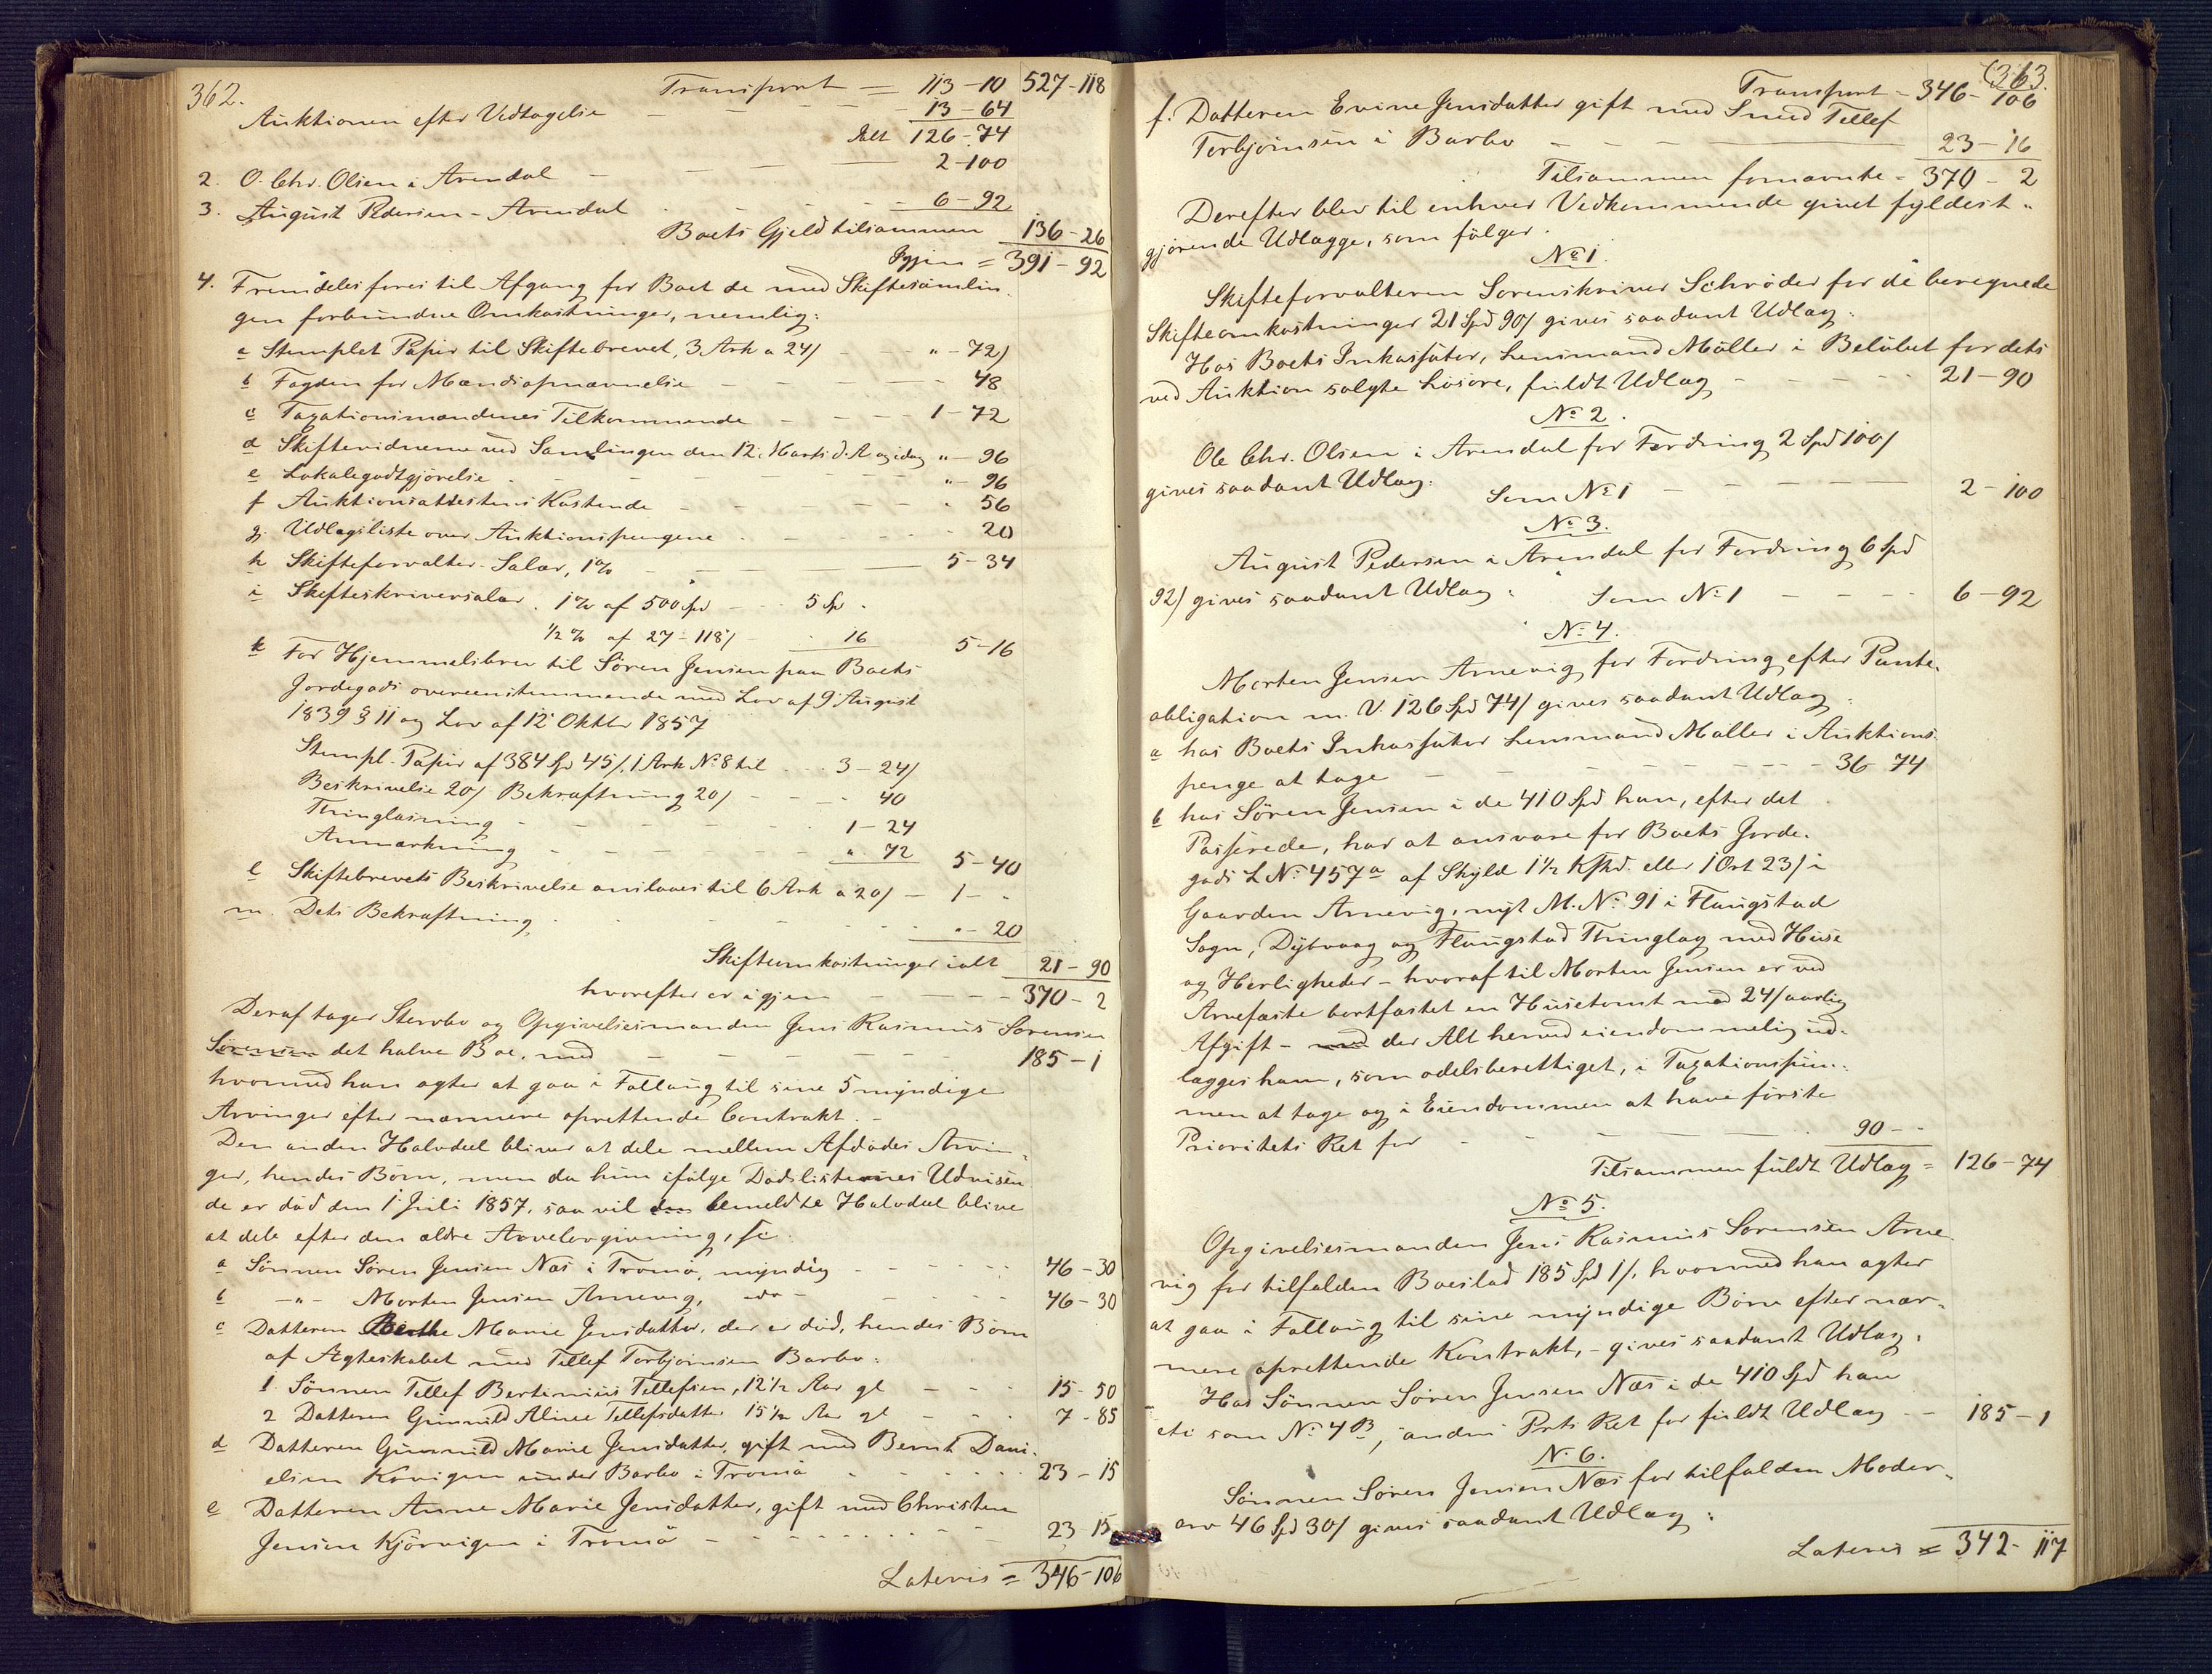 362.
Transport = 113-10 527-118
Auktionen efter Vedtagelse — 13-64
Alt 126-74
2. O. Chr. Olsen i Arendal — 2-100
3. August Pedersen - Arendal — 6-92
Boets Gjeld tilsammen 136-26
Igjen = 391-92
4. Fremdeles føres til Afgang for Boet de med Skiftesamlin
gen forbundne Omkostninger, nemlig:
a Stemplet Papir til Skiftebrevet, 3 Ark a 24/ — " - 72/
b Fogden for Mændsopnævnelse — 48
c Taxationsmændenes Tilkommende — 1-72
d Skiftevidnerne ved Samlingen den 12. Marts d. A og idag " - 96
e Lokalegodtgjørelse — " - 96
f Auktionsattestens Kostende — 56
g. Udlægsliste over Auktionspengene — 20
h Skifteforvalter-Salær, 1% — 5-34
i Skifteskriversalær. 1% af 500 Spd — 5 Sp.
½% af 27-118/ — 16 5-16
k For Hjemmelsbrev til Sören Jensen paa Boets
Jordegods overeenstemmende med Lov af 9 August
1839 § 11 og Lov af 12 Oktbr 1857
Stempl. Papir af 384 Spd 45/, 1 Ark No 8 til 3-24/
Beskrivelse 20/ Bekræftning 20/ — 40
Thinglæsning — 1-24
Anmærkning — " 72 5-40
l Skiftebrevets Beskrivelse anslaaes til 6 Ark a 20/ — 1 - -
m. Dets Bekræftning " - 20
Skifteomkostninger ialt 21-90
hvorefter er igjen — 370-2
Deraf tager Stervbo og Opgivelsesmanden Jens Rasmus Sorensen
Sörensen det halve Boe, med — 185-1
hvormed han agter at gaa i Fællaug til sine 5 myndige
Arvinger efter nærmere oprettende Contrakt. -
Den anden Halvdeel bliver at dele mellem Afdødes Arvin-
ger, hendes Børn, men da hun ifølge Dødslisternes Udvisen
de er död den 1 Juli 1857, saa vil den bemeldte Halvdeel blive
at dele efter den ældre Arvelovgivning,
a Sønnen Søren Jensen Næs i Tromö, myndig — 46-30
b -"- Morten Jensen Arnevig, — 46-30
c Datteren Berthe Marie Jensdatter, der er död, hendes Børn
af Ægteskabet med Tellef Torbjørnsen Barbo:
1. Sönnen Tellef Bertinius Tellefsen, 12½ Aar gl — 15-50
2 Datteren Gunnild Aline Tellefsdatter 15½ Aar gl — 7-85
d Datteren Gunnild Marie Jensdatter, gift med Bernt Dani-
elsen Kovigen under Barbo i Tromö — 23-15
e Datteren Anne Marie Jensdatter, gift med Christen
Jensen Kjørvigen i Tromö — 23 15
Lateris = 346-106
363.
Transport = 346-106
f. Datteren Evine Jensdatter gift med Smed Tellef
Torbjørnsen i Barbo — 23-16
Tilsammen fornævnte = 370-2
Derefter blev til enhver Vedkommende givet fyldest-
gjørende Udlægge, som følger.
No 1.
Skifteforvalteren Sorenskriver Schrøder for de beregnede
Skifteomkostninger 21 Spd 90/ gives saadant Udlæg:
Hos Boets Inkassator, Lensmand Møller i Belöbet for dets
ved Auktion solgte Løsøre, fuldt Udlæg — 21-90
No 2.
Ole Chr. Olsen i Arendal for Fordring 2 Spd 100/
gives saadant Udlæg:
Som No 1 — 2-100
No 3.
August Pedersen i Arendal for Fordring 6 Spd
92/ gives saadant Udlæg: Som No 1 — 6-92
No 4.
Morten Jensen Arnevig for Fordring efter Pante-
obligation m. V. 126 Spd 74/ gives saadant Udlæg:
a hos Boets Inkassator Lensmand Møller i Auktions-
penge at tage — 36 74
b hos Sören Jensen i de 410 Spd han, efter det
Passerede, har at ansvare for Boets Jorde-
gods L No 457a af Skyld 1½ Kfhd. eller 1 Ort 23/ i
Gaarden Arnevig, nyt M. No 91 i Flaugstad
Sogn, Dybvaag og Flaugstad Thinglag med Huse
og Herligheder - hvoraf til Morten Jensen er ved
Arvefæste bortfæstet en Husetomt mod 24/ aarlig
Afgift - med der Alt herved eiendommelig ud-
lægges ham, som odelsberettiget, i Taxationssum-
men at tage og i Eiendommen at have første
Prioritets Ret for — 90 -
Tilsammen fuldt Udlæg = 126-74
No 5.
Opgivelsesmanden Jens Rasmus Sorensen Arne
vig for tilfalden Boeslod 185 Spd 1/, hvormed han agter
at gaa i Fællaug til sine myndige Børn efter nær-
mere oprettende Kontrakt, - gives saadant Udlæg:
Hos Sönnen Sören Jensen Næs i de 410 Spd han
etc som No 4 B, anden Prts Ret for fuldt Udlæg — 185-1
No 6.
Sönnen Sören Jensen Næs for tilfalden Moder-
arv 46 Spd 30/ gives saadant Udlæg:
Lateris = 342-117